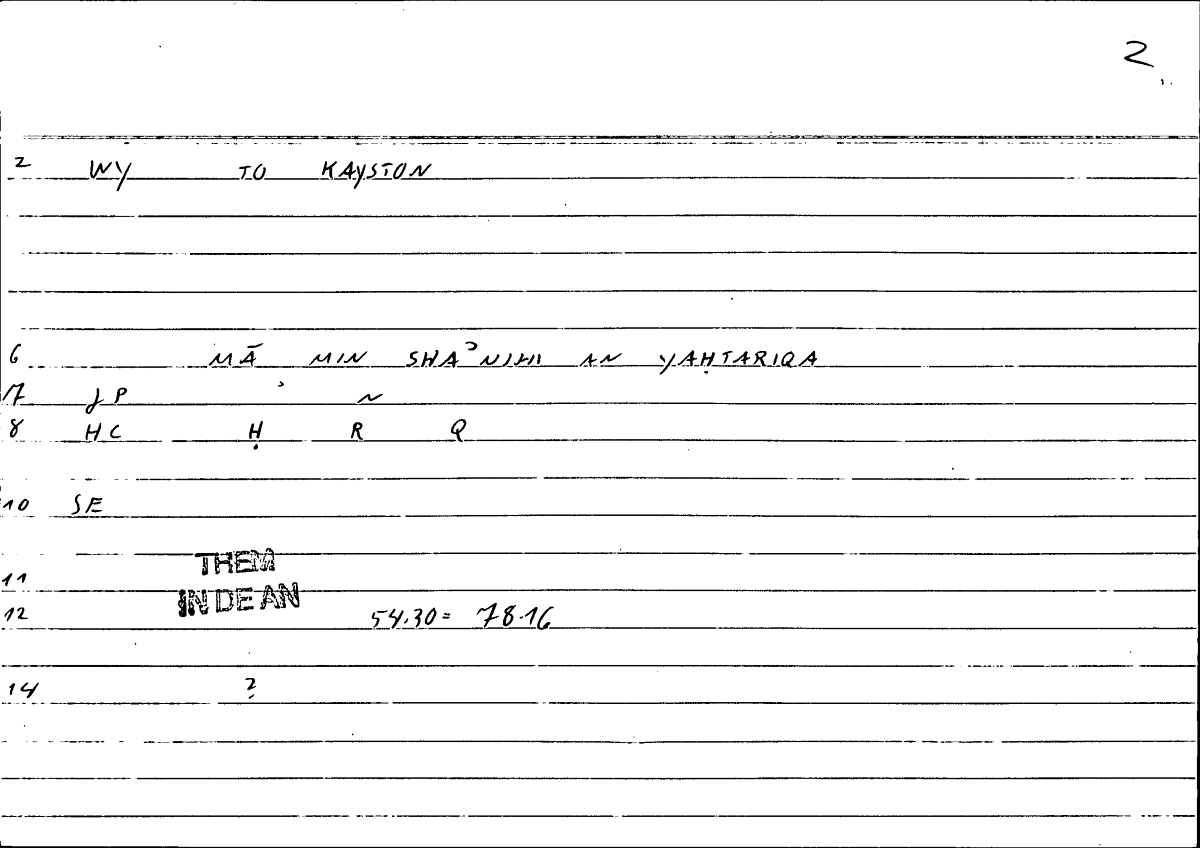 2
2 WY TO KAYSTON
6 MĀ MIN SHAʾNIHI AN YAḤTARIQA
17 JP ʾ N
8 HC Ḥ R Q
10 SE
THEM
11
IN DE AN
12 54.30= 78.16
14 ?